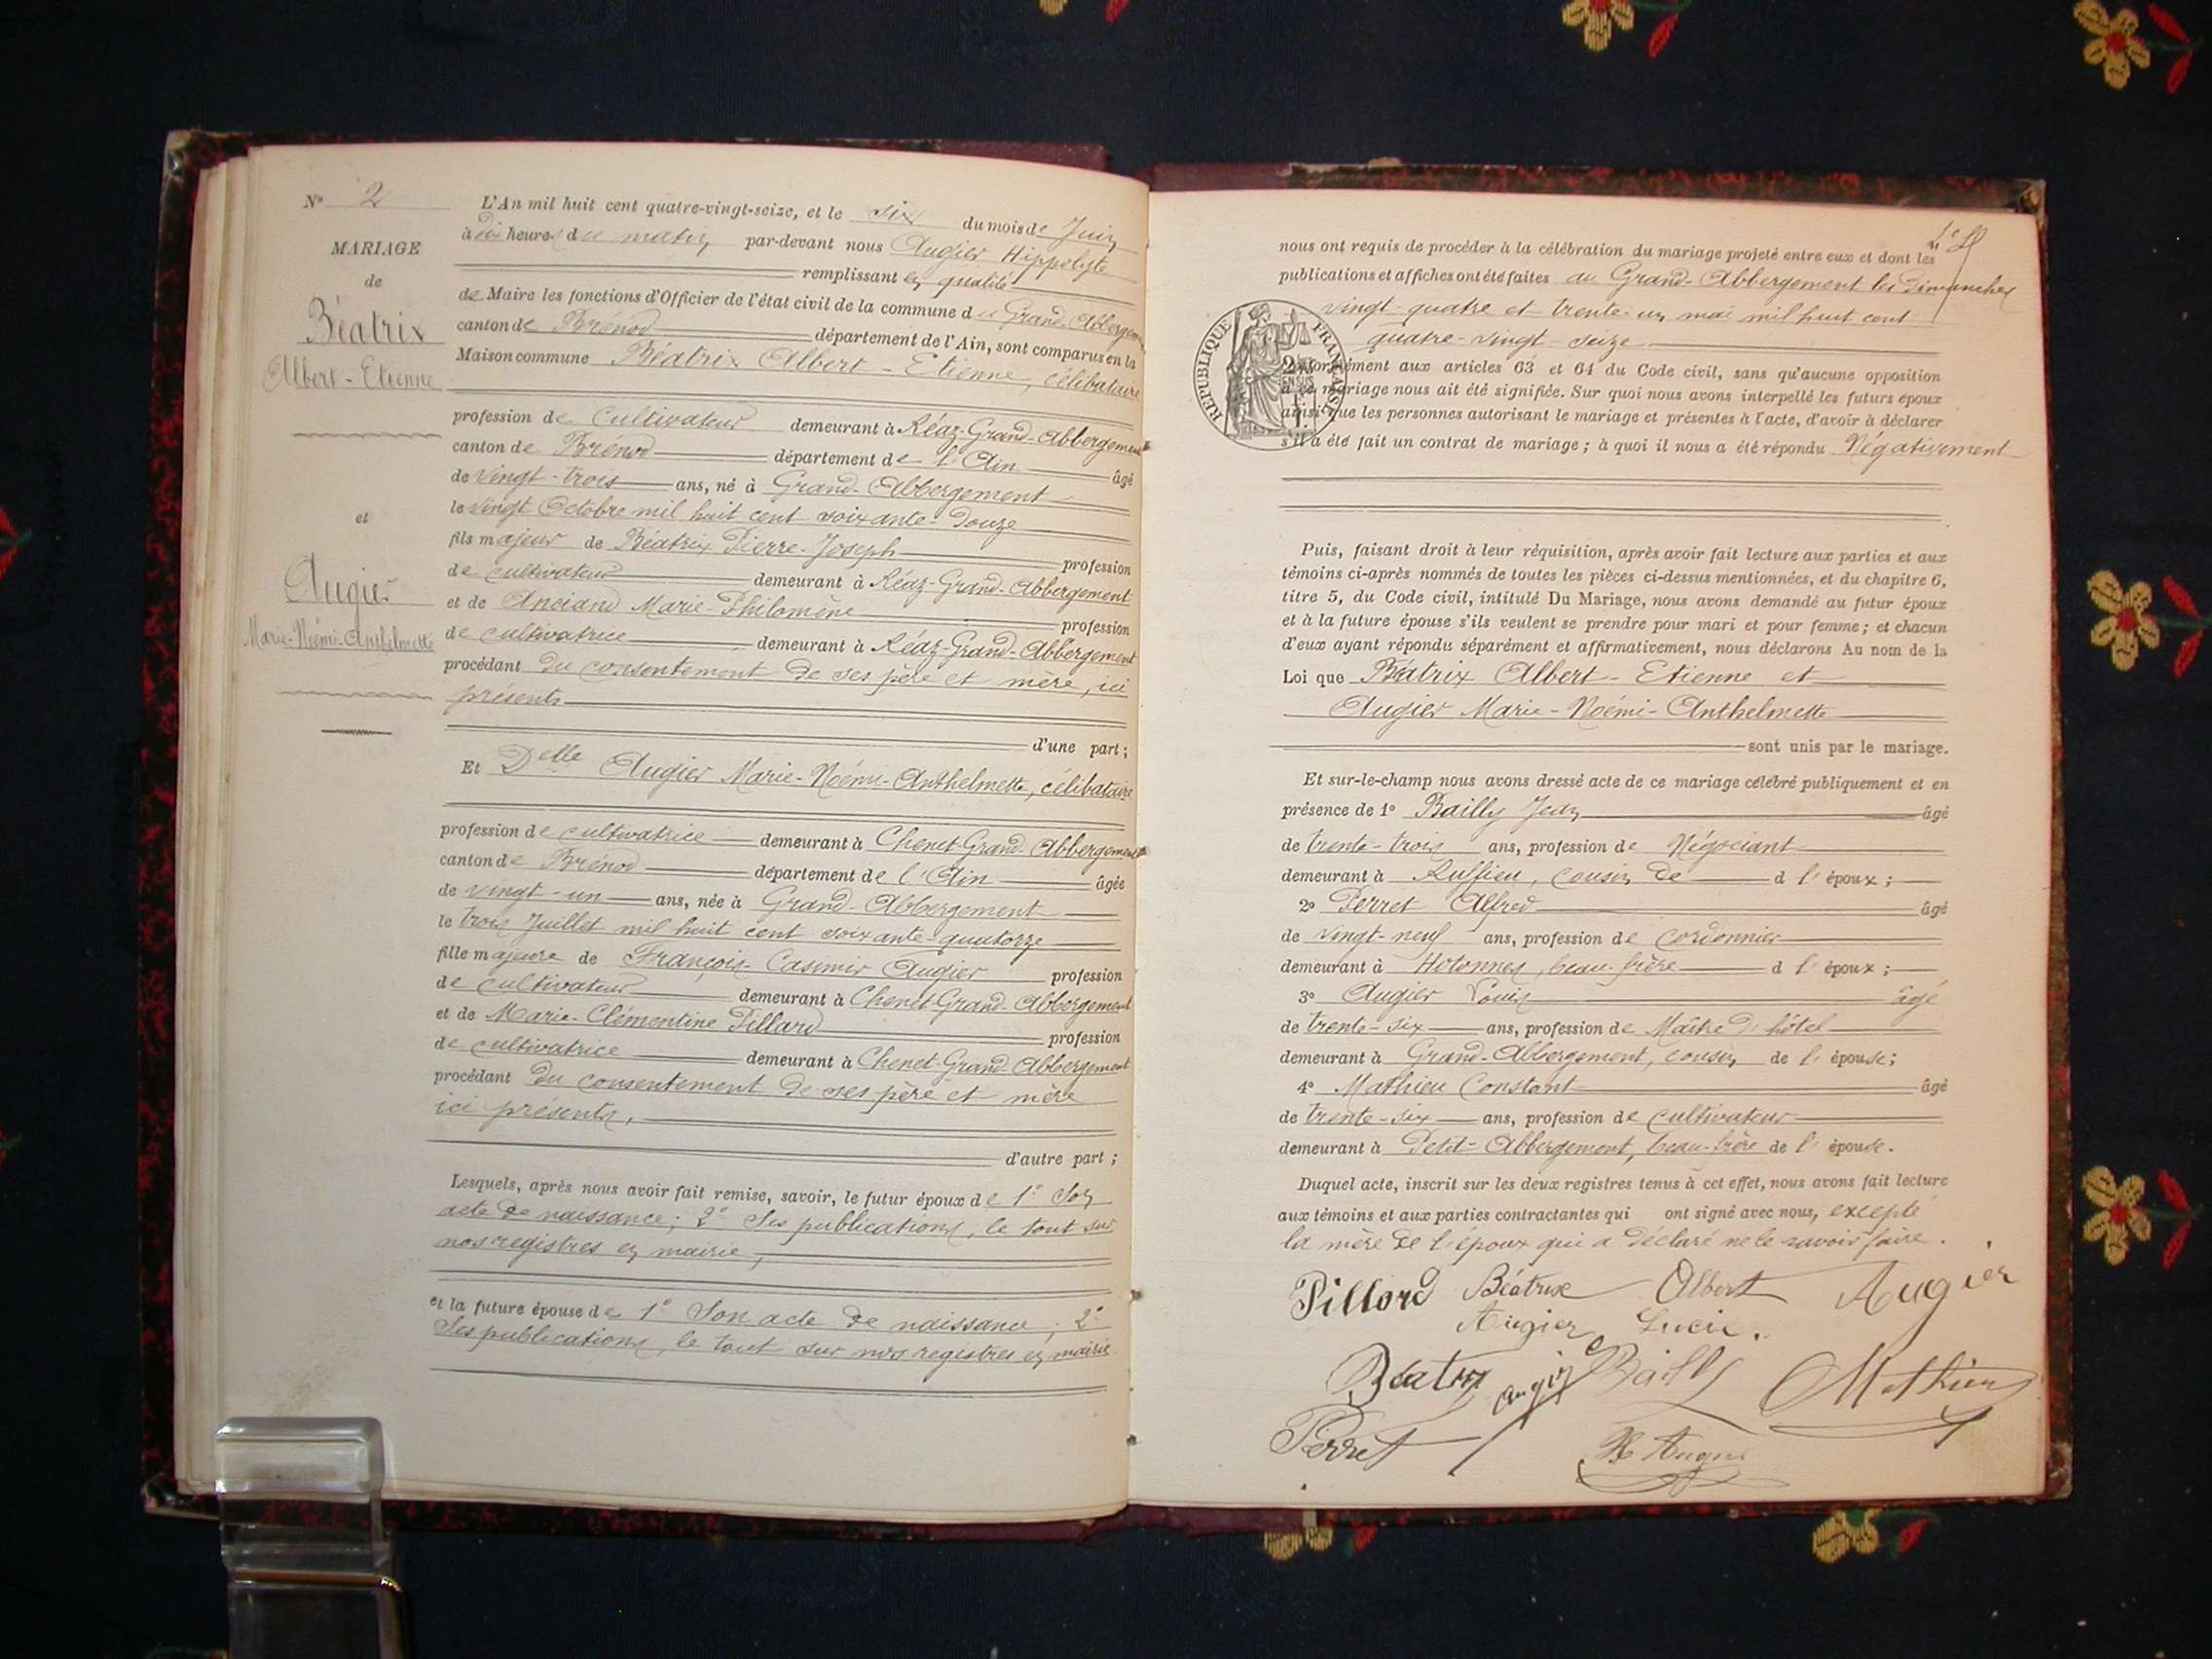 N° 2
MARIAGE
de
Béatrix
Albert-Etienne
et
Augier
Marie-Noémi-Anthelmette
L'An mil huit cent quatre-vingt-seize, et le six du mois de Juin
à dix heures du matin par-devant nous Augier Hippolyte
remplissant en qualité
de Maire les fonctions d'Officier de l'état civil de la commune du Grand-Abbergement
canton de Brénod département de l'Ain, sont comparus en la
Maison commune Béatrix Albert-Etienne, célibataire
profession de Cultivateur demeurant à Réaz-Grand-Abbergement
canton de Brénod département de l'Ain âgé
de vingt-trois ans, né à Grand-Abbergement
le vingt Octobre mil huit cent soixante-douze
fils majeur de Béatrix Pierre-Joseph profession
de cultivateur demeurant à Réaz-Grand-Abbergement
et de Anciand Marie-Philomène profession
de cultivatrice demeurant à Réaz-Grand-Abbergement
procédant du consentement de ses père et mère, ici
présents
d'une part;
Et Delle Augier Marie-Noémi-Anthelmette, célibataire
profession de cultivatrice demeurant à Chenet-Grand-Abbergement
canton de Brénod département de l'Ain âgée
de vingt-un ans, née à Grand-Abbergement
le trois Juillet mil huit cent soixante-quatorze
fille majeure de François-Casimir Augier profession
de cultivateur demeurant à Chenet-Grand-Abbergement
et de Marie-Clémentine Pillard profession
de cultivatrice demeurant à Chenet-Grand-Abbergement
procédant du consentement de ses père et mère
ici présents,
d'autre part;
Lesquels, après nous avoir fait remise, savoir, le futur époux de 1° Son
acte de naissance; 2° Ses publications, le tout sur
nos registres en mairie,
et la future épouse de 1° Son acte de naissance; 2°
Ses publications, le tout sur nos registres en mairie
nous ont requis de procéder à la célébration du mariage projeté entre eux et dont les
publications et affiches ont été faites au Grand-Abbergement les dimanches
vingt-quatre et trente-un mai mil huit cent
quatre-vingt-seize
REPUBLIQUE FRANÇAISE
conformément aux articles 63 et 64 du Code civil, sans qu'aucune opposition
à ce mariage nous ait été signifiée. Sur quoi nous avons interpellé les futurs époux
ainsi que les personnes autorisant le mariage et présentes à l'acte, d'avoir à déclarer
s'il a été fait un contrat de mariage; à quoi il nous a été répondu Négativement
Puis, faisant droit à leur réquisition, après avoir fait lecture aux parties et aux
témoins ci-après nommés de toutes les pièces ci-dessus mentionnées, et du chapitre 6,
titre 5, du Code civil, intitulé Du Mariage, nous avons demandé au futur époux
et à la future épouse s'ils veulent se prendre pour mari et pour femme; et chacun
d'eux ayant répondu séparément et affirmativement, nous déclarons Au nom de la
Loi que Béatrix Albert-Etienne et
Augier Marie-Noémi-Anthelmette
sont unis par le mariage.
Et sur-le-champ nous avons dressé acte de ce mariage célébré publiquement et en
présence de 1° Bailly Jean âgé
de trente-trois ans, profession de Négociant
demeurant à Ruffieu, cousin de d l'époux;
2° Perret Alfred âgé
de vingt-neuf ans, profession de cordonnier
demeurant à Hotonnes, beau-frère d l'époux;
3° Augier Louis âgé
de trente-six ans, profession de Maître d'hôtel
demeurant à Grand-Abbergement, cousin de l'épouse;
4° Mathieu Constant âgé
de trente-six ans, profession de cultivateur
demeurant à Petit-Abbergement, beau-frère de l'épouse.
Duquel acte, inscrit sur les deux registres tenus à cet effet, nous avons fait lecture
aux témoins et aux parties contractantes qui ont signé avec nous, excepté
la mère de l'époux qui a déclaré ne le savoir faire.
Pillord Béatrix Albert Augier
Augier Lucie.
Béatrix Augier Bailly Mathieu
Perret H Augier